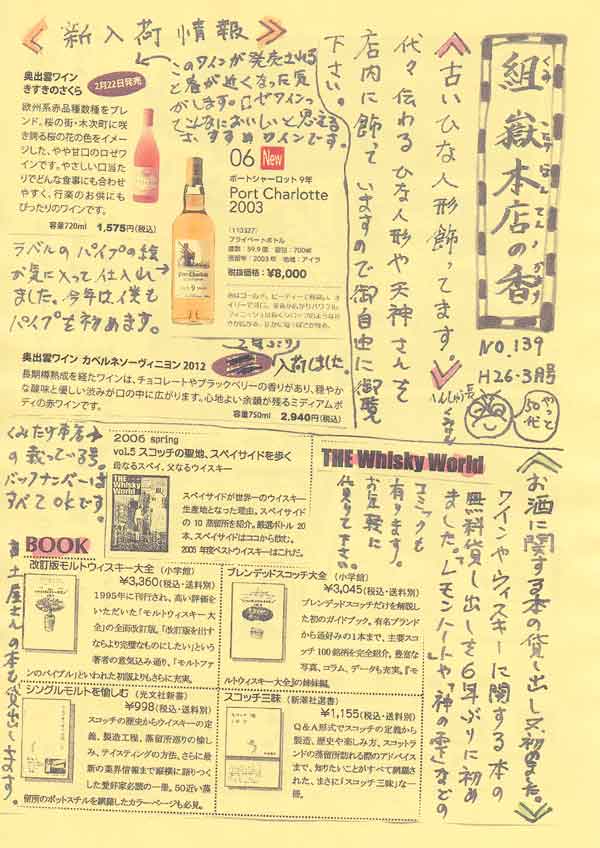 組嶽本店の香
くみ たけ ほん てん の かおり
NO.139
H26.3月号
へんしゅう長
くみさん
やっと
50代
《古いひな人形飾ってます。》
代々伝わるひな人形や天神さんを
店内に飾っていますので御自由に御覧
下さい。
《新入荷情報》
このワインが発売される
と春が近くなった気
がします。ロゼワインっ
てこんなにおいしいと思える
おすすめワインです。
奥出雲ワイン
きすきのさくら
2月22日発売
欧州系赤品種数種をブレ
ンド、桜の街・木次町に咲
き誇る桜の花の色をイメー
ジした、やや甘口のロゼワ
インです。やさしい口当た
りでどんな食事にも合わせ
やすく、行楽のお供にも
ぴったりのワインです。
容量720ml 1,575円(税込)
06 New
ポートシャーロット 9年
Port Charlotte
2003
プライベートボトル
度数：59.9度 容量：700ml
蒸留年：2003年 地域：アイラ
税抜価格：¥8,000
ラベルのパイプの絵
が気に入って仕入れ
ました。今年は僕も
パイプを初めます。
奥出雲ワイン カベルネソーヴィニヨン2012
2年ぶりに
入荷しました。
長期樽熟成を経たワインは、チョコレートやブラックベリーの香りがあり、穏やか
な酸味と優しい渋みが口の中に広がります。心地よい余韻が残るミディアムボ
ディの赤ワインです。
容量750ml 2,940円(税込)
《お酒に関する本の貸し出し又初めました。》
ワインやウィスキーに関する本の
無料貸し出しを6年ぶりに初め
ました。「レモンハート」や「神の雫」などの
コミックも
有ります。
お気軽に
借りて下さい。
THE Whisky World
くみたけ本店
の載っている号。
バックナンバーは
すべてOKです。
2006 spring
vol.5 スコッチの聖地、スペイサイドを歩く
母なるスペイ、父なるウイスキー
THE Whisky World
スペイサイドが世界一のウイスキー
生産地となった理由。スペイサイド
の10蒸留所を紹介。厳選ボトル20
本、スペイサイドはココから飲む。
2005年度ベストウイスキーはこれだ。
BOOK
改訂版モルトウィスキー大全（小学館）
¥3,360(税込・送料別)
1995年に刊行され、高い評価を
いただいた「モルトウィスキー大
全」の全面改訂版。「改訂版を出す
ならより完璧なものにしたい」という
著者の意気込み通り、「モルトファ
ンのバイブル」といわれた初版よりもさらに充実。
ブレンデッドスコッチ大全（小学館）
¥3,045(税込・送料別)
ブレンデッドスコッチだけを解説し
た初のガイドブック。有名ブランド
から通好みの1本まで、主要スコッ
チ100銘柄を完全紹介。豊富な
写真、コラム、データも充実。『モ
ルトウィスキー大全』の姉妹編。
シングルモルトを愉しむ（光文社新書）
¥998(税込・送料別)
スコッチの歴史からウイスキーの定
義、製造工程、蒸留所巡りの愉し
み、テイスティングの方法、さらに最
新の業界情報まで縦横に語りつく
した愛好家必読の一冊。50近い蒸
留所のポットスチルを網羅したカラーページも必見。
スコッチ三昧（新潮社選書）
¥1,155(税込・送料別)
Q&A形式でスコッチの定義から
製造、歴史や楽しみ方、スコットラン
ドの蒸留所訪れる際のアドバイス
まで、知りたいことがすべて網羅さ
れた、まさに「スコッチ三昧」な一
冊。
土屋さんの本も貸出します。